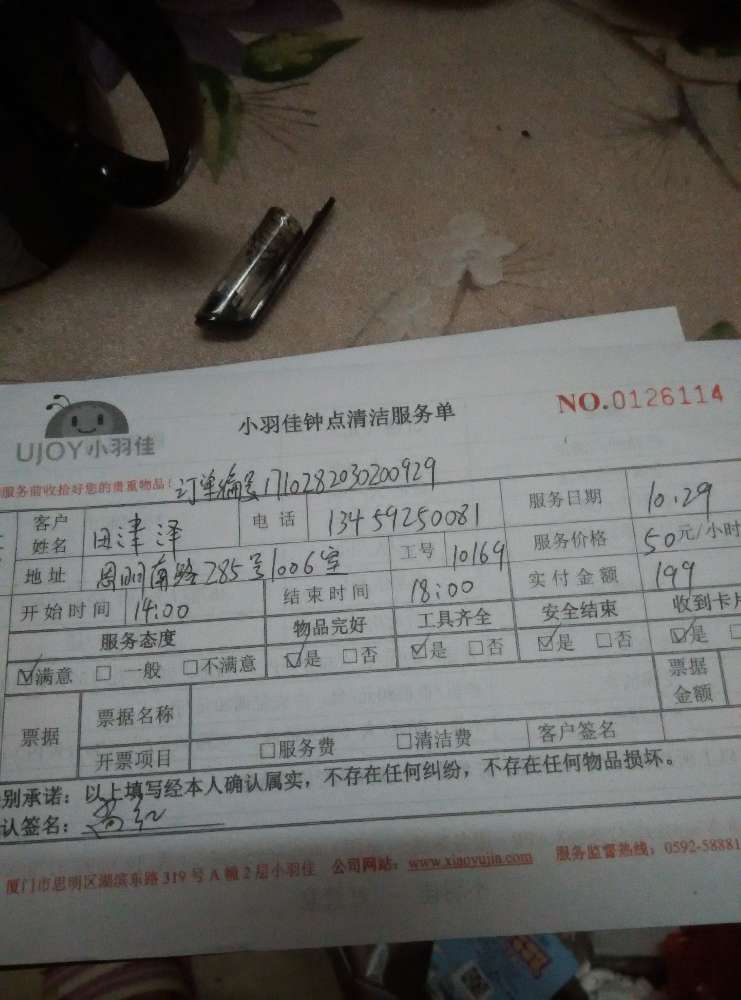 UJOY小羽佳
小羽佳钟点清洁服务单
NO.0126114
服务前收拾好您的贵重物品!
订单编号1710282030200929
客户姓名 田津泽 电话 13459250081 服务日期 10.29
地址 285号1006室 工号 10169 服务价格 50元/小时
开始时间 14:00 结束时间 18:00 实付金额 199
服务态度 物品完好 工具齐全 安全结束 收到卡片
☑满意 □一般 □不满意 ☑是 □否 ☑是 □否 ☑是 □否 ☑是 □
票据 票据名称 票据金额
开票项目 □服务费 □清洁费 客户签名
别承诺:以上填写经本人确认属实,不存在任何纠纷,不存在任何物品损坏。
认签名:
厦门市思明区湖滨东路319号A幢2层小羽佳 公司网站:www.xiaoyujia.com 服务监督热线:0592-58881